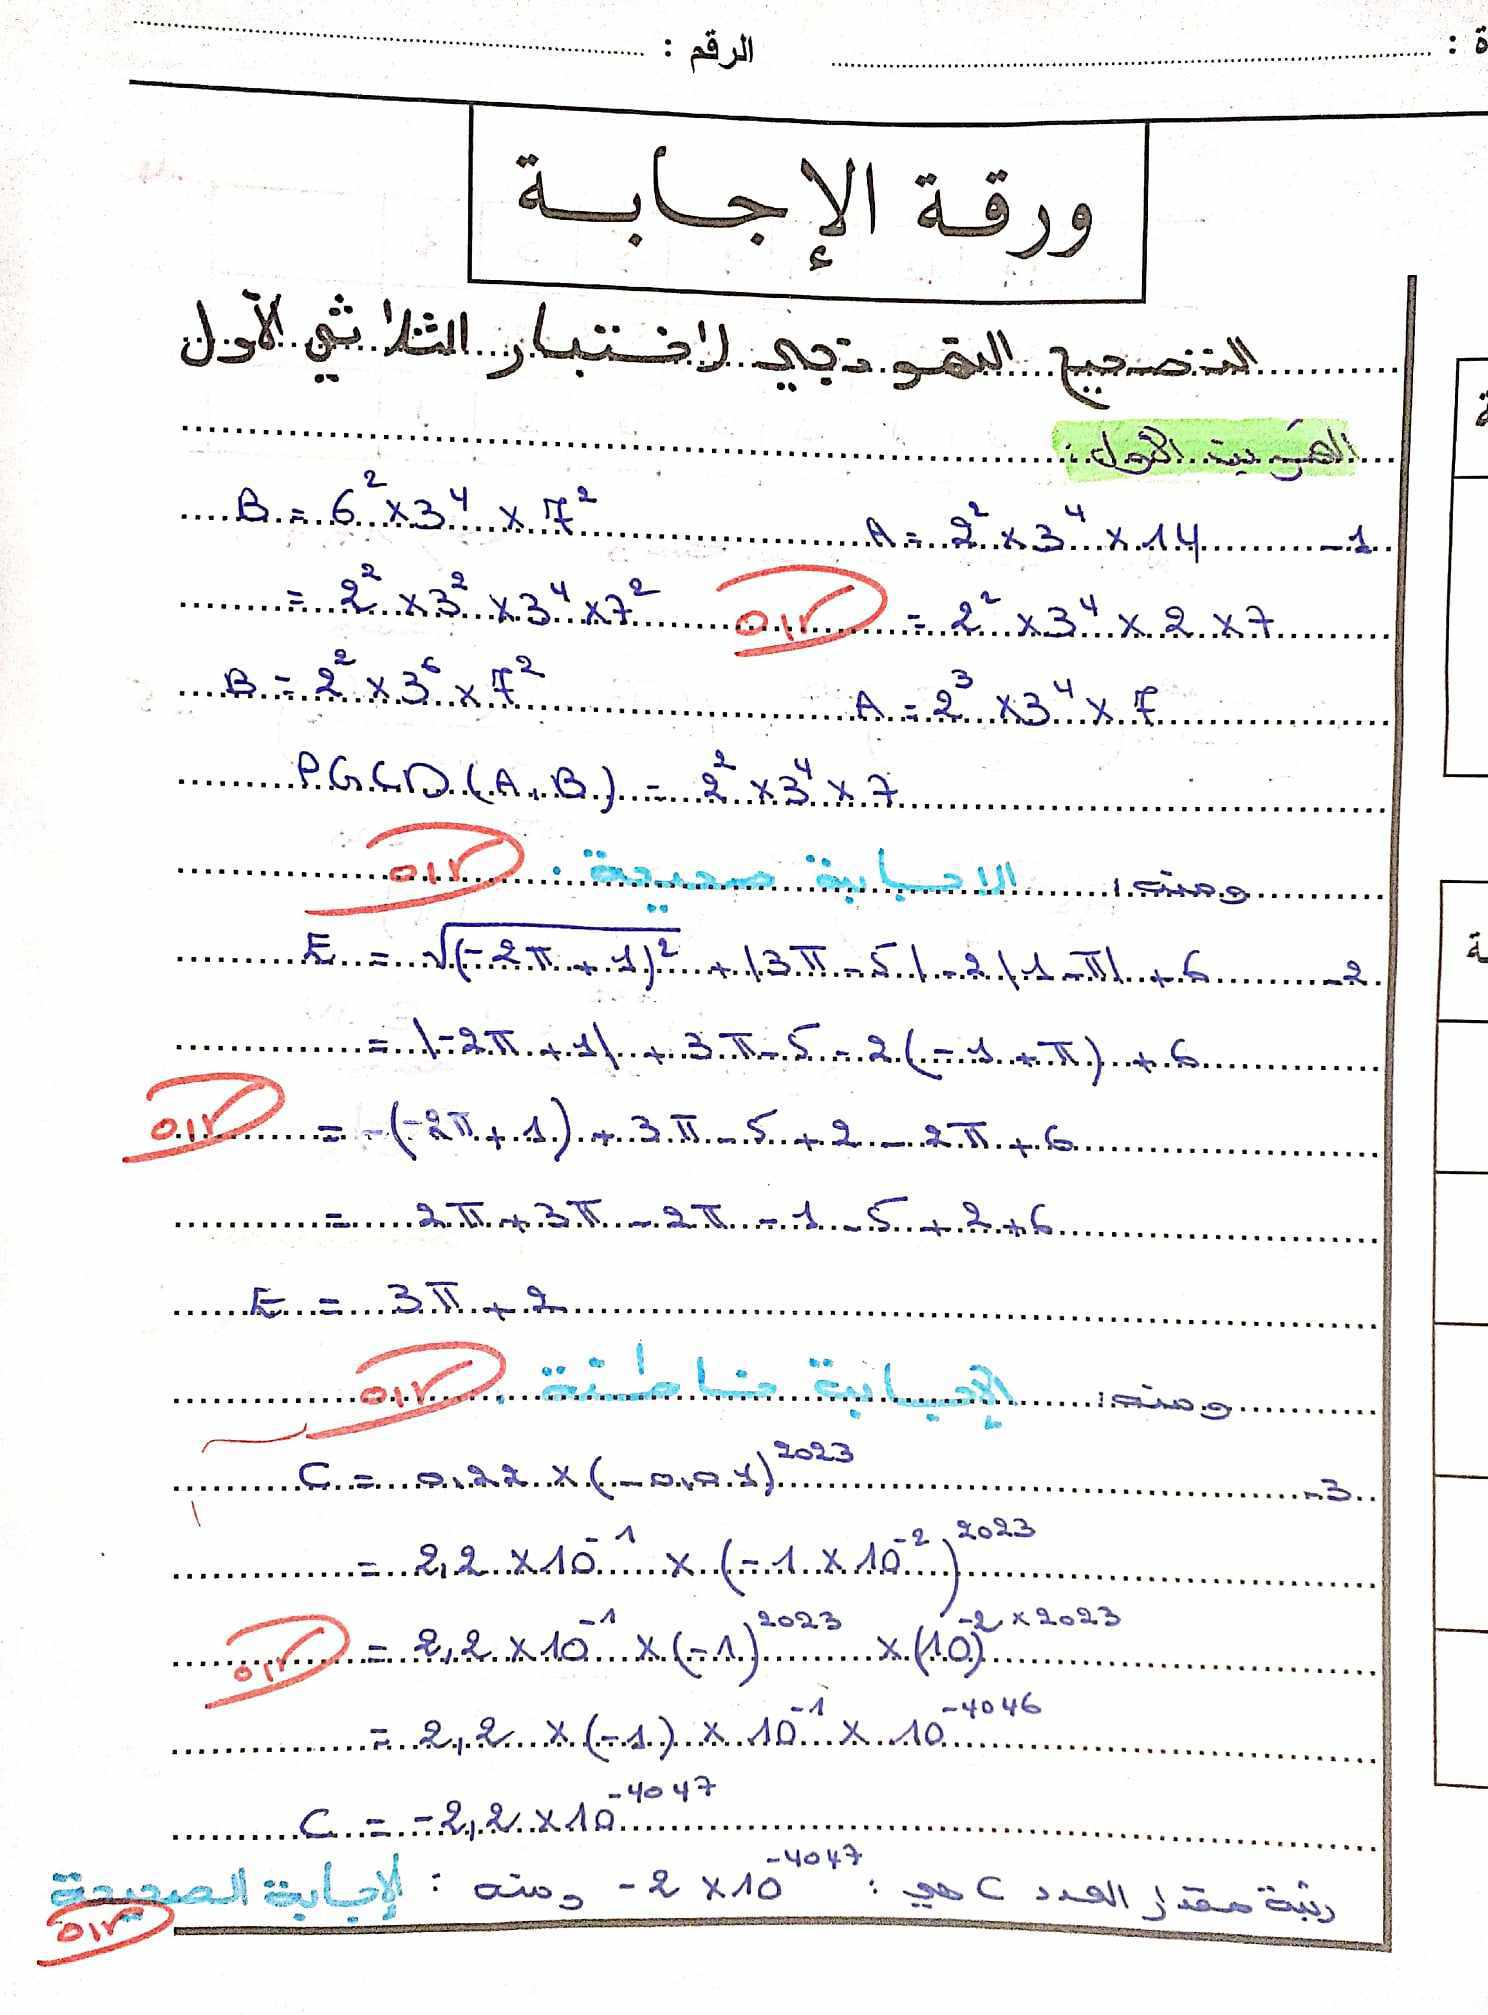 ة : الرقم :
ورقة الإجابة
التصحيح النموذجي لاختبار الثلاثي الأول
التمرين الأول:
1- A = 2² × 3⁴ × 14    B = 6² × 3⁴ × 7²
= 2² × 3⁴ × 2 × 7    = 2² × 3² × 3⁴ × 7²
A = 2³ × 3⁴ × 7    B = 2² × 3⁶ × 7²
PGCD(A,B) = 2² × 3⁴ × 7
ومنه: الإجابة صحيحة.
2- E = √(-2π + 1)² + |3π - 5| - 2|1 - π| + 6
= |-2π + 1| + 3π - 5 - 2(-1 + π) + 6
= -(-2π + 1) + 3π - 5 + 2 - 2π + 6
= 2π + 3π - 2π - 1 - 5 + 2 + 6
E = 3π + 2
ومنه: الإجابة خاطئة.
3- C = 0,22 × (-0,01)²⁰²³
= 2,2 × 10⁻¹ × (-1 × 10⁻²)²⁰²³
= 2,2 × 10⁻¹ × (-1)²⁰²³ × (10)⁻²ˣ²⁰²³
= 2,2 × (-1) × 10⁻¹ × 10⁻⁴⁰⁴⁶
C = -2,2 × 10⁻⁴⁰⁴⁷
رتبة مقدار العدد C هي: -2 × 10⁻⁴⁰⁴⁷ ومنه: الإجابة الصحيحة